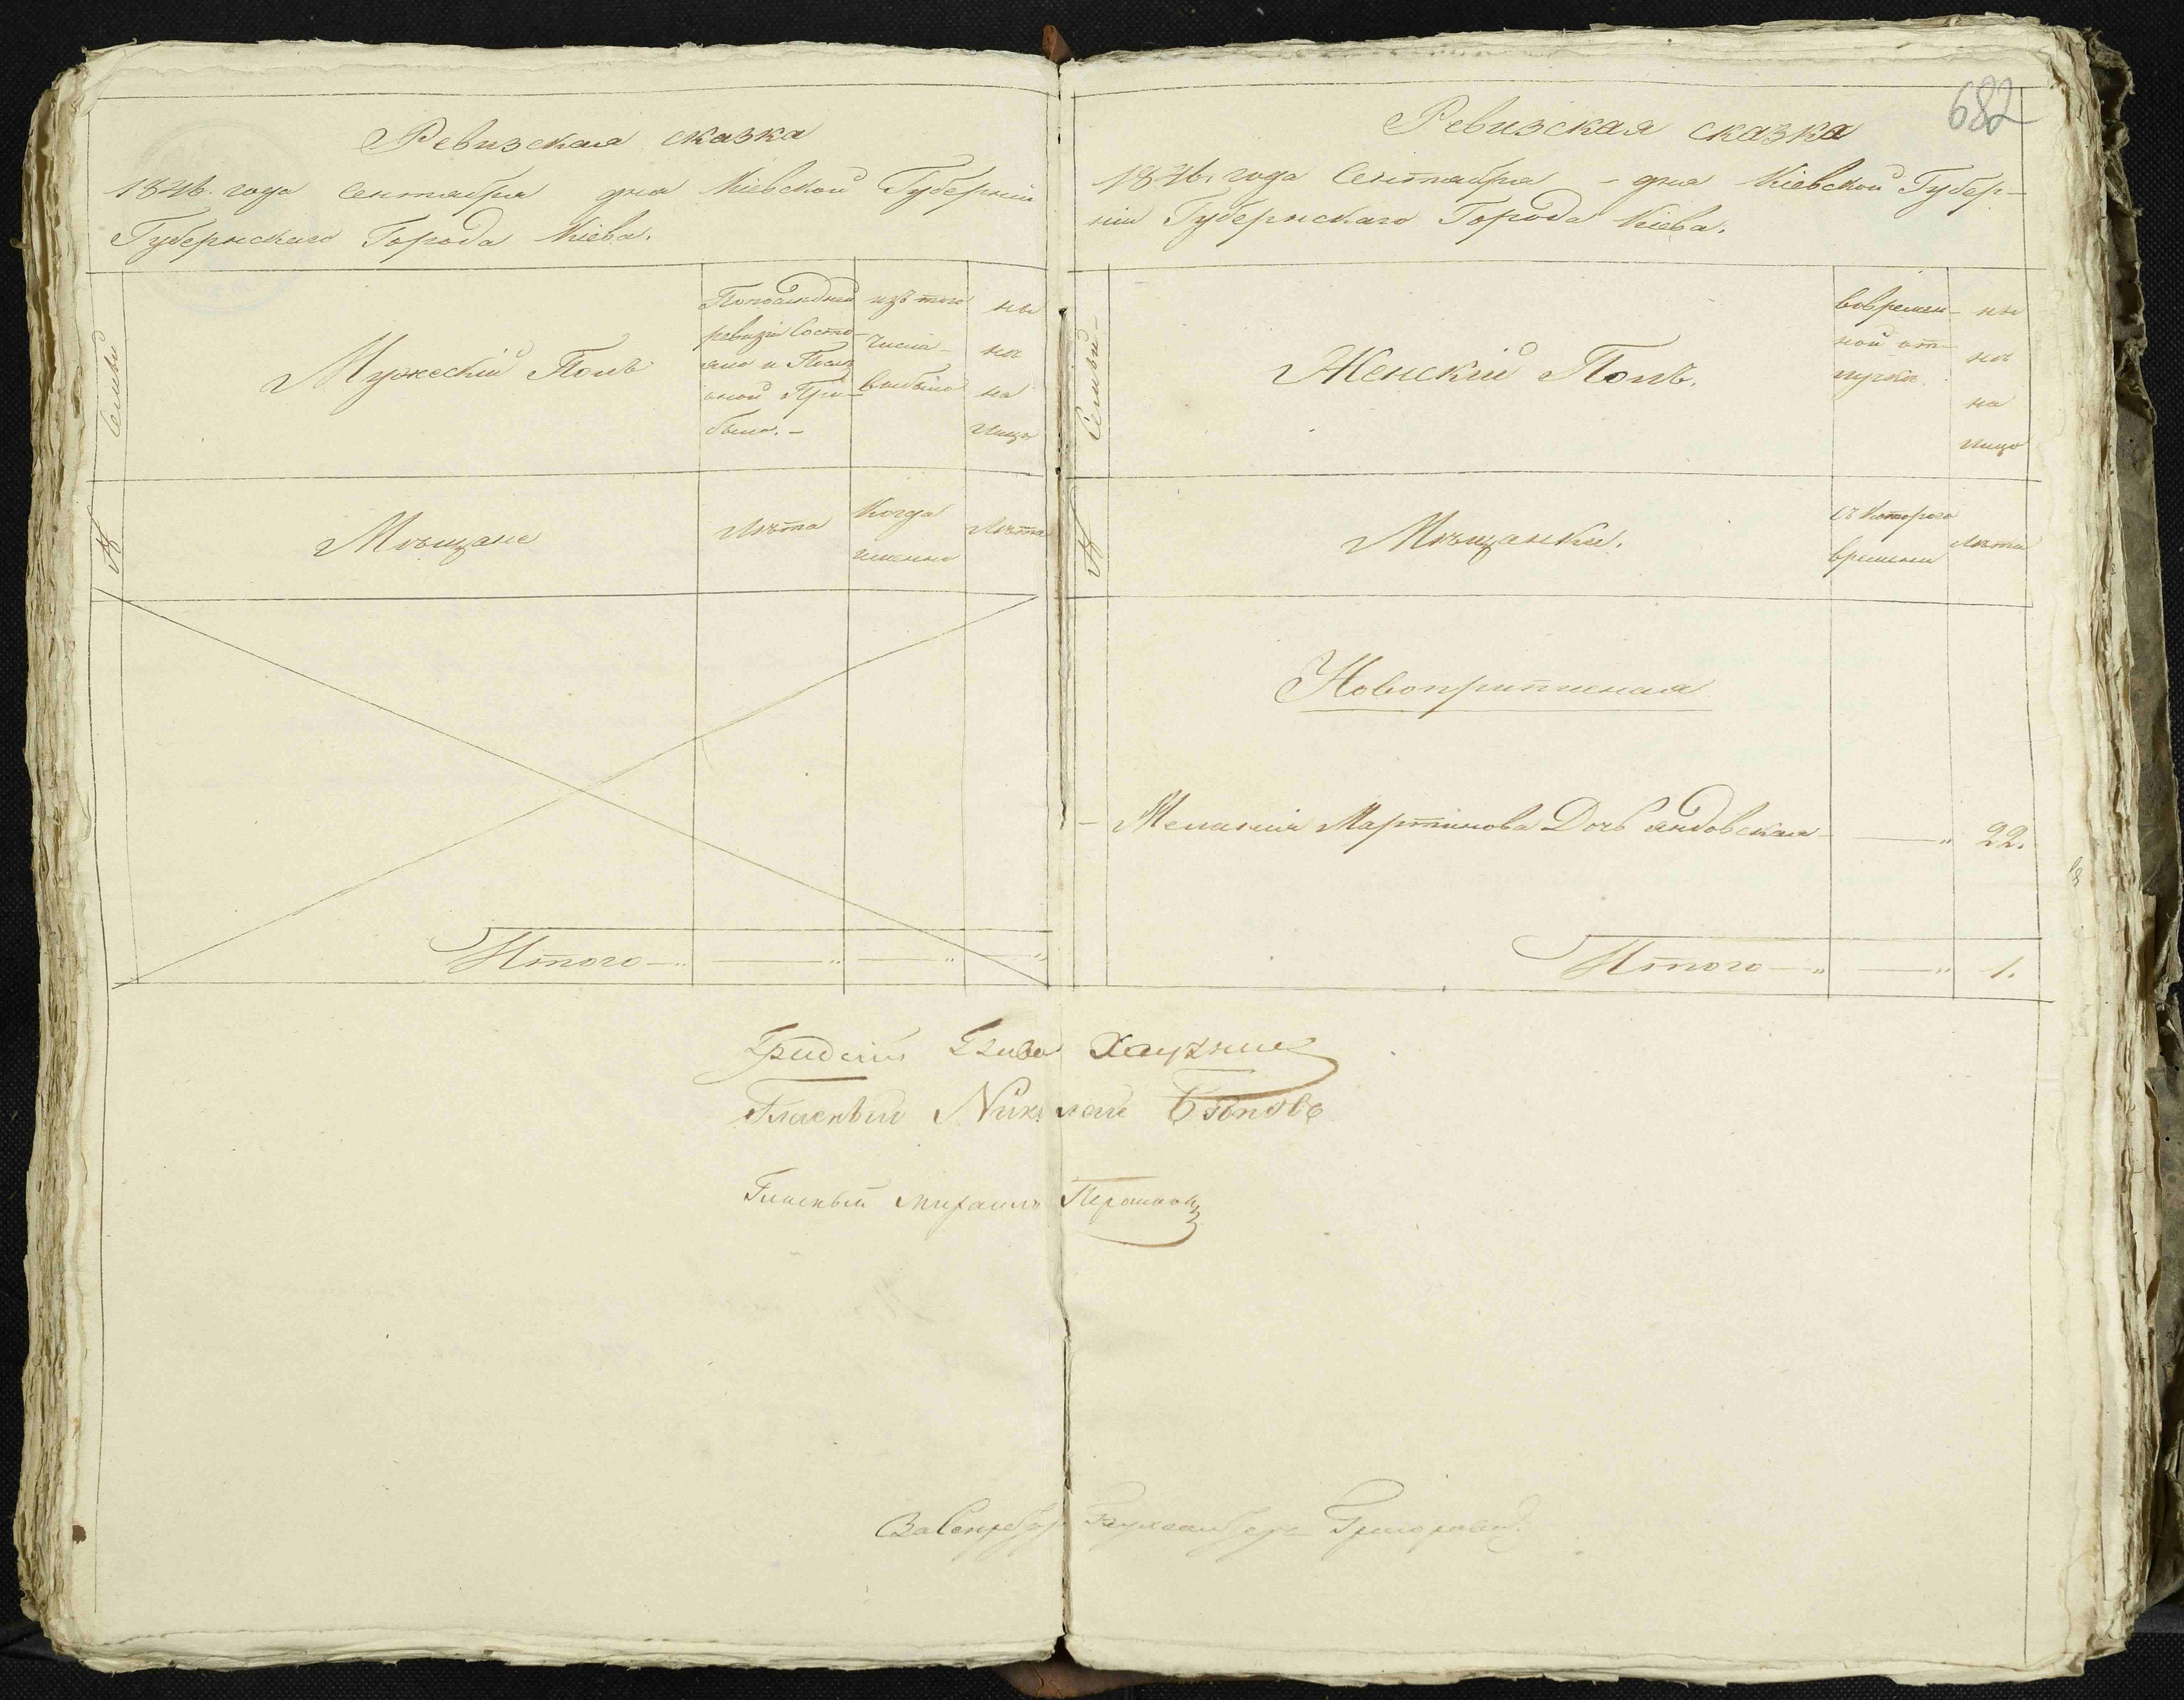 Ревизская сказка
1846. года Сентября дня Кіевской Губерніи
Губернскаго Города Кіева.
№ Семьи
Мужескій Полъ
Попоследней
ревизіи Состо-
яло и Посль
оной При-
было. –
изъ того
числа
выбыло
ны
нѣ
на
лицо
Мѣщане
Лѣта
Когда
именно
Лѣта
Итого
682
Ревизская сказка
1846. года Сентября – дня Кіевской Губер-
ніи Губернскаго Города Кіева.
№ Семьи
Женскій Полъ.
вовремян-
ной от-
лучкѣ
ны
нѣ
на
лицо
Мѣщанки.
съ Котораго
времени
Лѣта
Новоприписная
– Меланія Мартинова Дочь 22.
Итого 1.
Градскій Глава
Гласный Николай
Гласный Михаилъ
За Секретаря